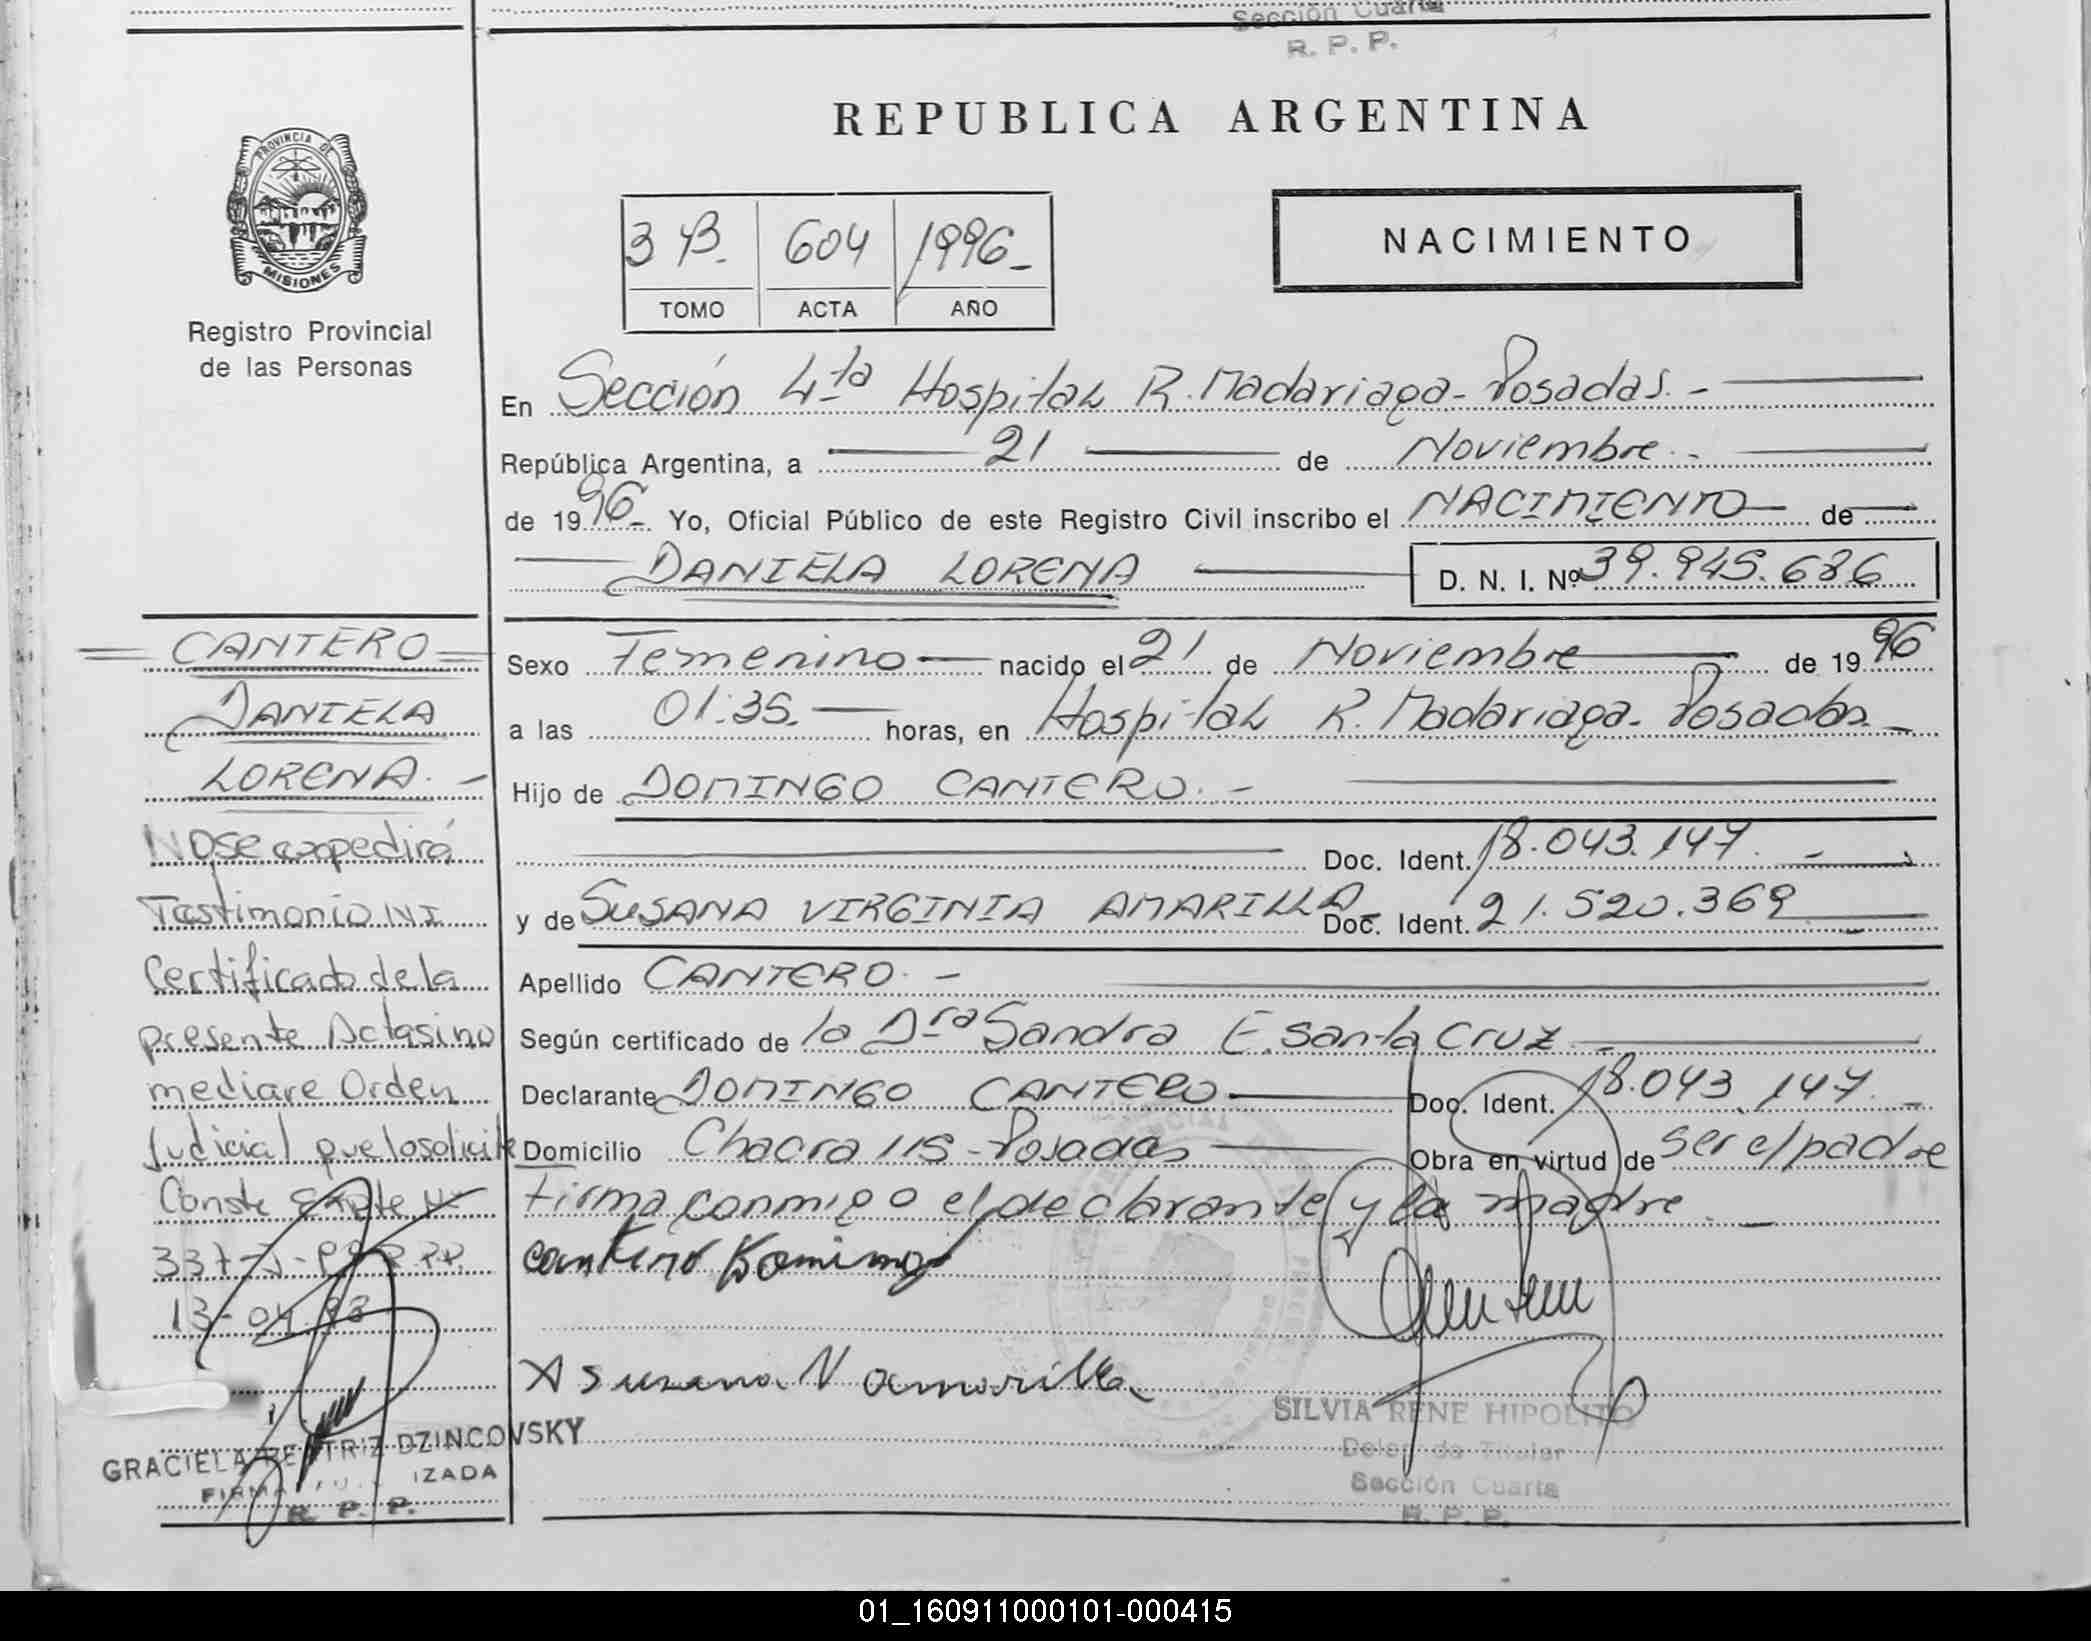 Sección Cuarta
R. P. P.
REPUBLICA ARGENTINA
PROVINCIA DE
MISIONES
Registro Provincial
de las Personas
3 B. 604 1996_
TOMO ACTA AÑO
NACIMIENTO
En Sección 4ta Hospital R. Madariaga - Posadas. -
República Argentina, a 21 de Noviembre. -
de 1996_ Yo, Oficial Público de este Registro Civil inscribo el NACIMIENTO de
DANIELA LORENA D. N. I. Nº 39.945.686
Sexo Femenino nacido el 21 de Noviembre de 1996
a las 01:35. horas, en Hospital R. Madariaga - Posadas. -
Hijo de DOMINGO CANTERO. -
Doc. Ident. 18.043.147. -
y de SUSANA VIRGINIA AMARILLA - Doc. Ident. 21.520.369
Apellido CANTERO. -
Según certificado de la Dra Sandra E. Santa Cruz -
Declarante DOMINGO CANTERO Doc. Ident. 18.043.147. -
Domicilio Chacra 115 - Posadas Obra en virtud de ser el padre
Firma conmigo el declarante y la madre. -
Cantero Domingo
Susana V Amarilla
SILVIA RENE HIPOLITO
Delegada Titular
Sección Cuarta
R. P. P.
CANTERO
DANIELA
LORENA. -
NO se expedirá
Testimonio NI
Certificado de la
presente Acta sino
mediare Orden
Judicial que lo solicite
Conste Expte Nº
13-04
GRACIELA BEATRIZ DZINCOVSKY
FIRMA AUTORIZADA
R. P. P.
01_160911000101-000415